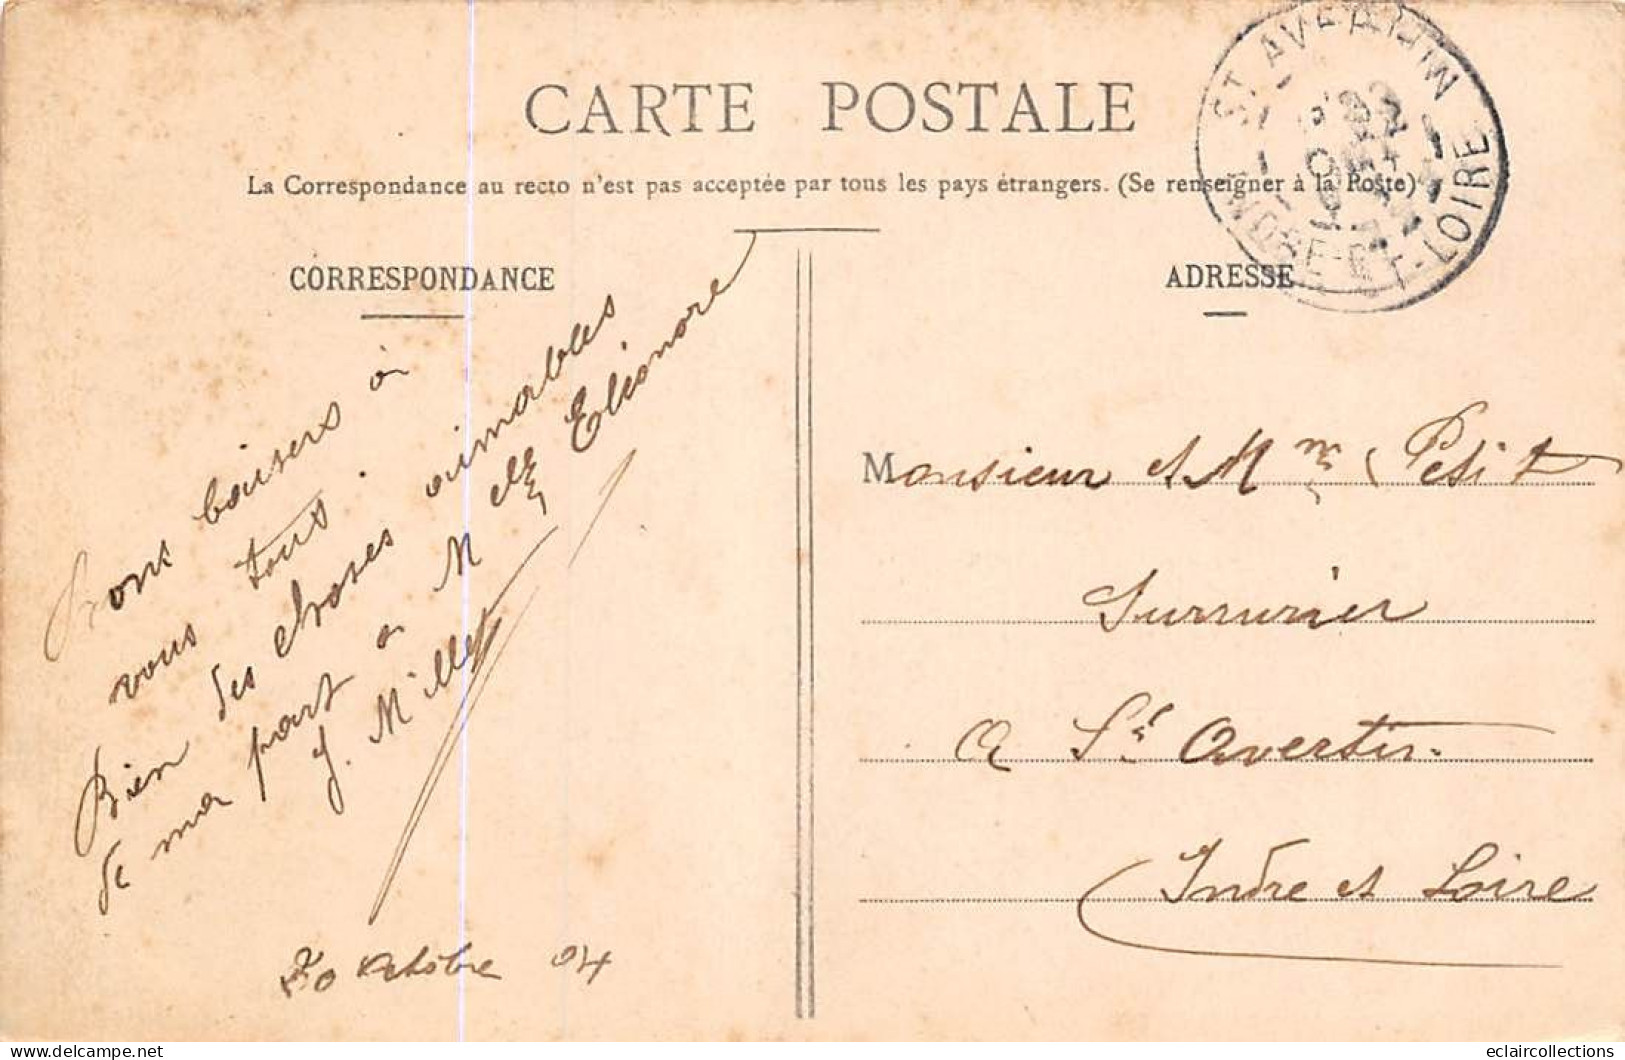 CARTE POSTALE
La Correspondance au recto n'est pas acceptée par tous les pays étrangers. (Se renseigner à la Poste)
CORRESPONDANCE
Bons baisers à
vous tous.
Bien des choses aimables
de ma part a Melle Eléonore
J. Millet
30 octobre 04
ADRESSE
Monsieur et Mme Petit
Surrurier
a St Avertin
Indre et Loire
ST AVERTIN
INDRE-ET-LOIRE
eclaircollections